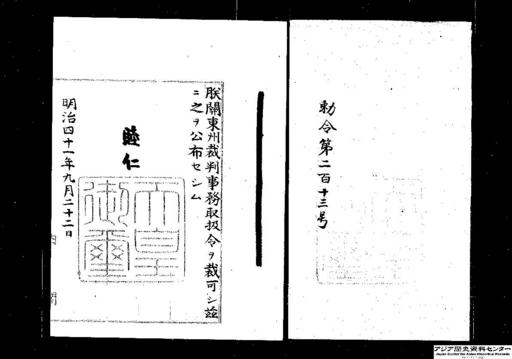 勅令第二百十三号
朕關東州裁判事務取扱令ヲ裁可シ茲
ニ之ヲ公布セシム
睦仁
天皇御璽
明治四十一年九月二十二日
内閣
アジア歴史資料センター
Japan Center for Asian Historical Records